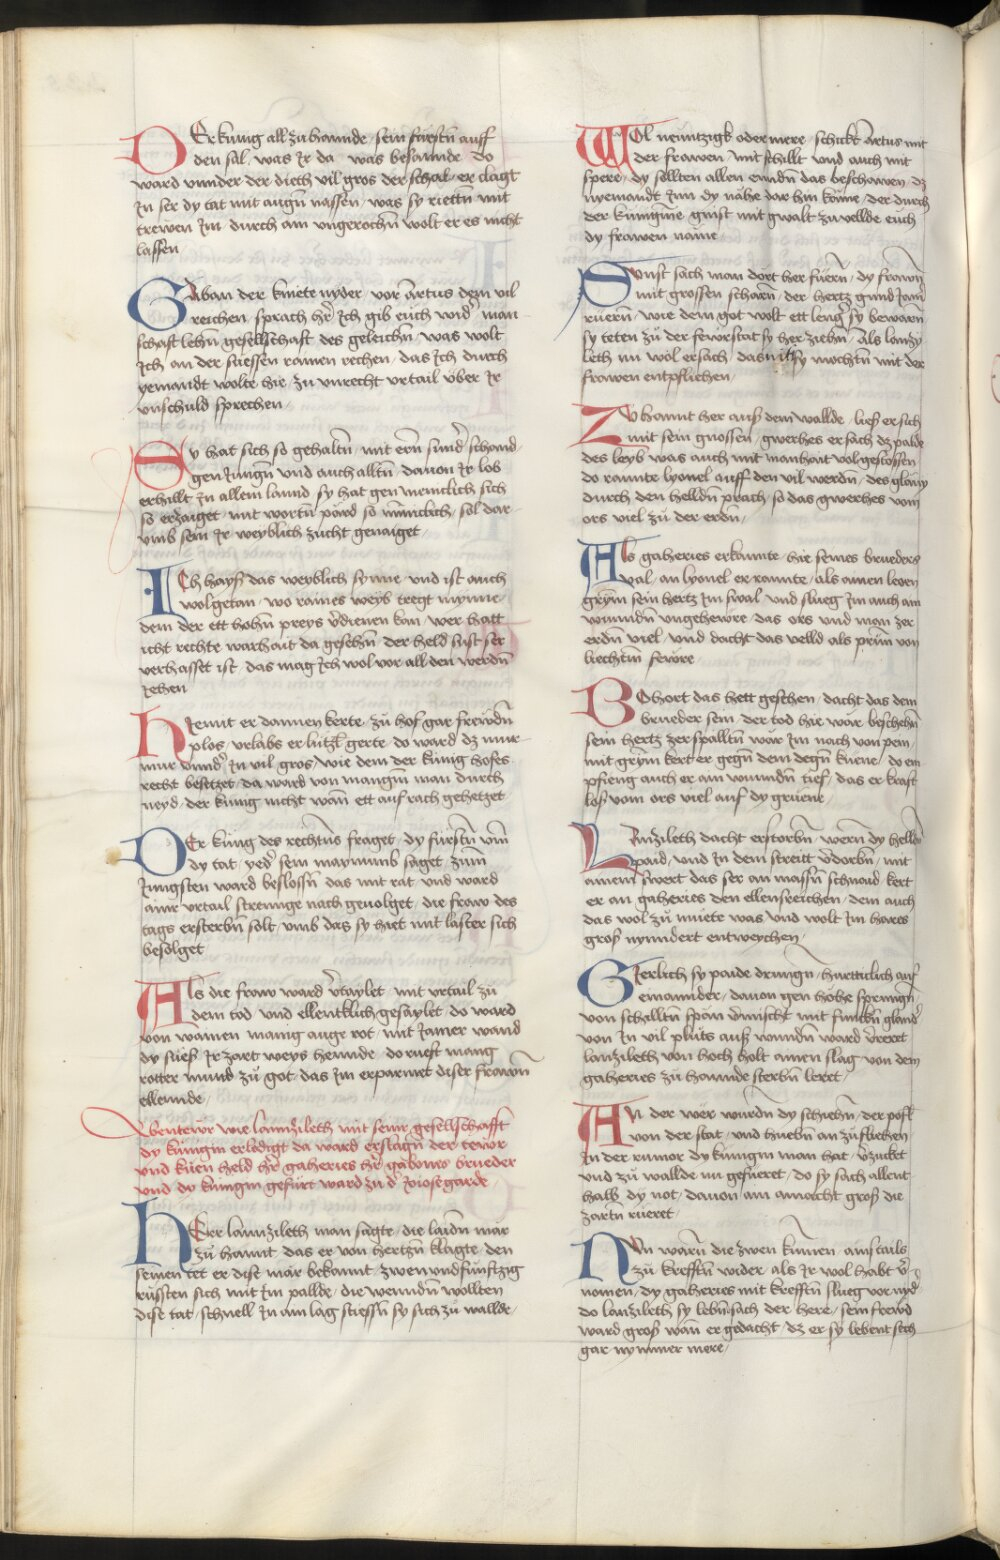 DEr kunig all zuhannde / sein fürstn̄ auff
den sal / was Jr da / was besannde / do
ward unnder der diech vil gros der schal / er clagt
Jn ser dy tat mit augn̄ nassen / was sy riettn̄ mit
trewen Jm / durch ain ungerochn̄ wolt er es nicht
lassen
GAban der kniete nyder / vor Artus dem vil
reichen / sprach hr̄ Jch gib euch wid' / man
schaft lehn̄ gesellschaft des geleichn̄ / was wolt
Jch an der suessen rainen rechen / das Jch durch
yemandt wolte hie / zu unrecht urtail über Jr
unschuld sprechen /
Sy hat sich so gehaltn̄ / mit ern̄ sund' schand
gen Jungn̄ und auch alltn̄ / davon Jr lob
erhillt Jn allem lannd / sy hat gen menclich sich
so erzaiget / mit wortn̄ pārd so minniclich / sol dar
umb sein Jr weyblich zucht genaiget /
ICh hayss das weyblich synne / und ist auch
wolgetan / wo raines weyb tregt mynne /
dem der ett hohn̄ preys v̄dienen kan / wer hatt
icht rechte warhait da gesehn̄ / der held sust ser
verhasset ist / das mag Jch wol vor all den werdn̄
Jehen
HIemit er dannen kerte / zu hof gar frewdn̄
plos / urlabs er lützl gerte / do ward dz mur
mur unnd' Jn vil gros / wie dem der künig hofes
recht besetzet / da ward von mangm man durch
neyd / der künig nicht wān ett auf rach gehetzet
DEr künig des rechtn̄s fraget / dy fürstn̄ um̄
dy tat / yed' sein maynunb saget / zum
Jungsten ward beslossn̄ das mit rat und ward
ainr urtail strennge nach gevolget / die fraw des
tags ersterbn̄ solt / umb das sy hiet mit laster sich
besolget
Als die fraw ward v̄taylet / mit urtail zu
dem tod / und ellentklich gesaylet / do ward
von wainen manig auge rot / mit Jamer wand
dy suess Jr zart weys hennde / do rueft mang
rotter mund zu got / das Jm erparmet diser frawn̄
ellennde /
Abentewr wie lannzileth mit seinr gesellschafft
dy künigin erledigt da ward erslagn̄ der tewr
und küen held hr̄ gaheries hr̄ gabans brueder
und dy künigin gefürt ward zu d' Joiosegarde
HErr lannzileth man sagte / die laidn̄ mär
zu hannt / das er von hertzn̄ klagte / den
seinen tet er dise mär bekannt / zwenundfunftzig
rüssten sich mit Jm pallde / die wenndn̄ wollten
dise tat / schnell Jn ain lag stiessn̄ sy sich zu wallde /
WOl neuntzigk oder mere / schickt Artus mit
der frawen / mit schillt und auch mit
spere / dy sollten allen enndn̄ das beschawen / dz
nyemandt Jnn dy nähe dar hin köme / der durch
der künigine gunst mit gwalt zu vellde euch
dy frawen näme
SUnst sach man dort her füern̄ / dy frawn̄
mit grossen scharn̄ / der hertz gund Jam'
ruern̄ / wie dem got wolt ett leng' sy bewarn̄
sy teten zu der fewrstat sy her ziehn̄ / Als lanzy
leth nu wol ersach / das nit sy mochtn̄ mit der
frawen entpfliehen /
ZU hannt her aus dem wallde / lies er sich
mit sein gnossen / gwerhes er sach dz palde
des leyb was auch mit manhait vol gestossen
do rannte lyonel auff den vil werdn̄ / des glany
durch den helldn̄ prach / so das gwerhes vom
ors viel zu der erdn̄ /
Als gaheries erkannte / hie seines brueders
val / an lyonel er rannte / als ainen leven
grym̄ sein hertz Jm swal / und slueg Jm auch ain
wunndn̄ ungehewre / das ors und man zer
erdn̄ viel / und dacht das velld als prün̄ von
liechtm fewre
BOhort das hett gesehen / dacht das dem
brueder sein / der tod hie wär beschehn̄
sein hertz zerspalltn̄ wär Jm nach von pein /
mit grym̄ kert er gegn̄ dem degn̄ küene / do em
pfieng auch er ain wunndn̄ tief / das er kraft
los vom ors viel auf dy grüene /
LAnzileth dacht erstorbn̄ / wern̄ dy helldn̄
paid / und Jn dem streitt v̄dorbn̄ / mit
ainem swert das ser an massn̄ schnaid / kert
er an gaheries den ellensreichen / dem auch
das wol zu muete was und wolt Jm hares
gros nynndert entweychen /
GIerlich sy paide drungn̄ / hurttclich auf
einannder / davon gen höhe sprungn̄
von schilltn̄ spän v̄mischt mit funckn̄ gland'
von Jn vil pluts aus wunndn̄ ward v̄reret
lanzileth von hoch holt ainen slag / von dem
gaheries zu hannde sterbn̄ leret /
An der wer wurdn̄ dy schiehn̄ / der pofl
von der stat / und huebn̄ an zufliehen
Jn der rumor dy künigin man hat / v̄zuckt
und zu wallde nu gefueret / do sy sach allent
halb dy not / davon ain amacht gros die
zartn̄ rüeret /
NUn warn̄ die zwen kumen / ains tails
zu krefftn̄ wider / als Jr wol habt v̄
nomen / dy gaheries mit krefftn̄ slueg vor nyd'
do lanzileth sy lebn̄ sach der here / sein frewd
ward gros wān er gedacht / dz er sy lebent sech
gar nymmer mere /